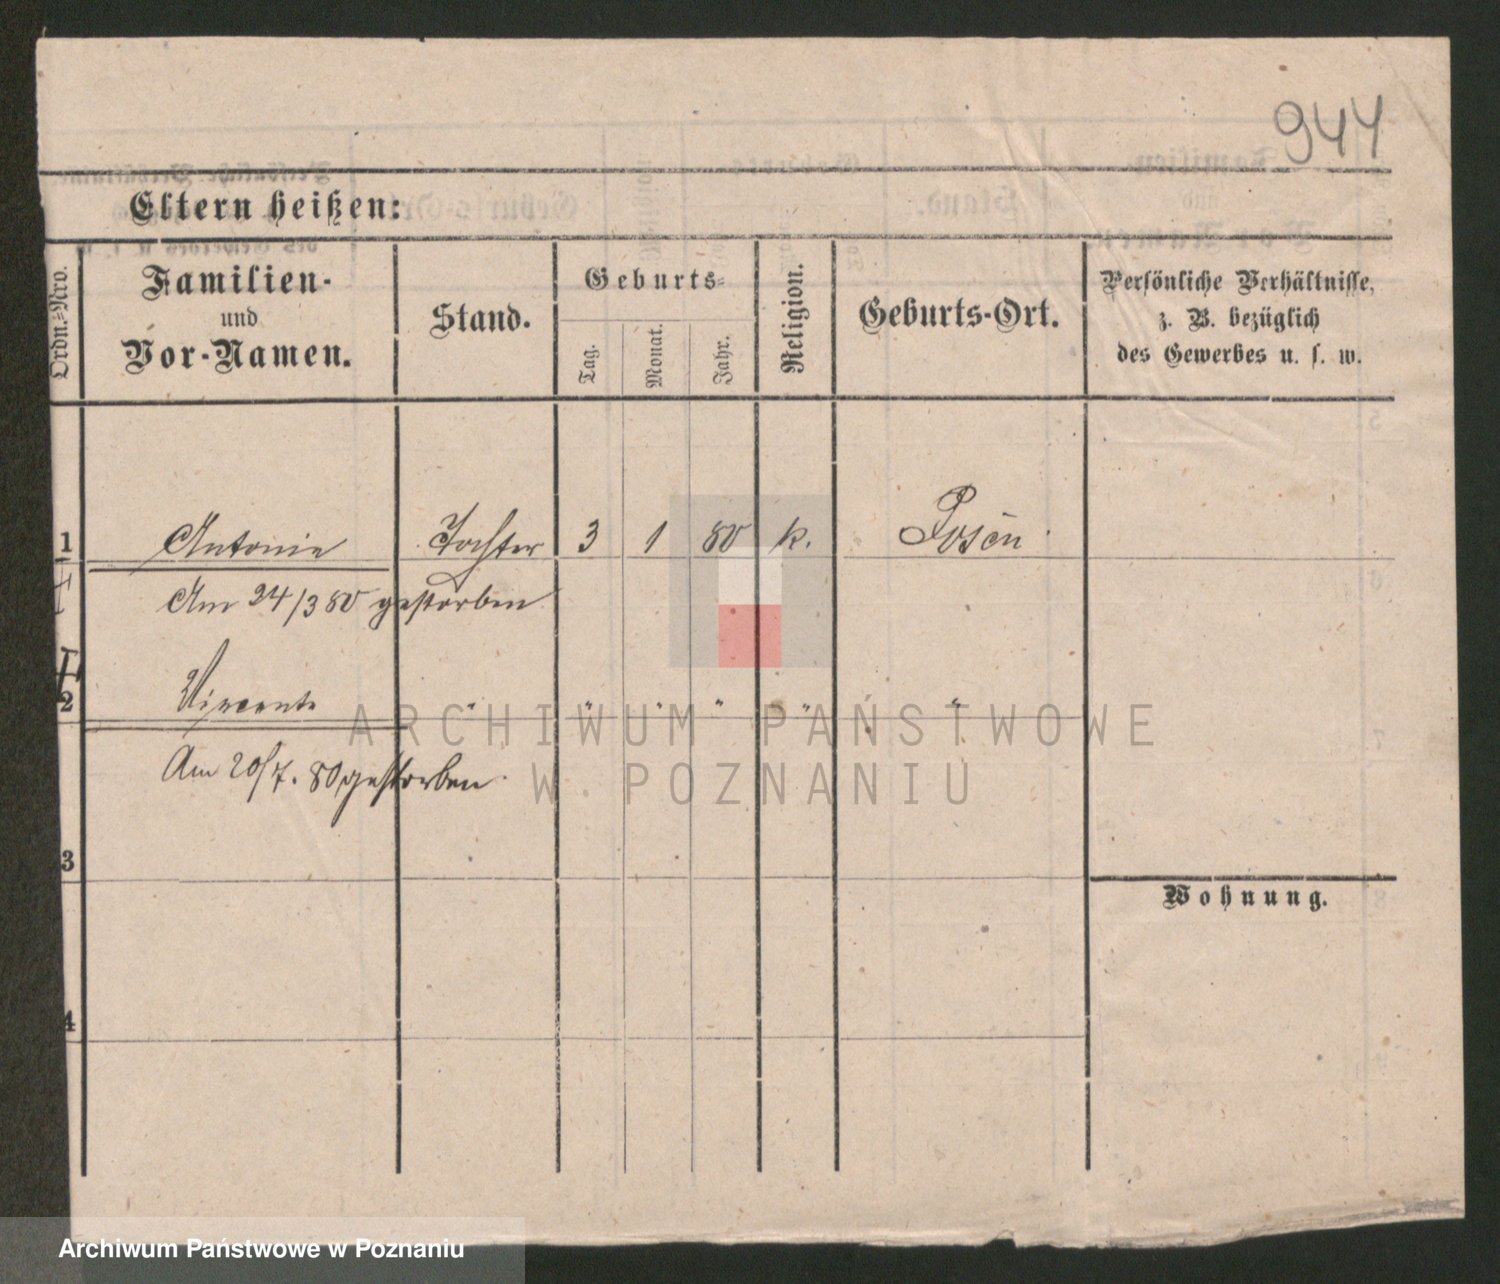 944
Eltern heißen:
Ordn.-Nro.
Familien-
und
Vor-Namen.
Stand.
Geburts-
Tag.
Monat.
Jahr.
Religion.
Geburts-Ort.
Persönliche Verhältnisse,
z. B. bezüglich
des Gewerbes u. s. w.
1 Antonie Tochter 3 1 80 k. Posen
Am 24/3 80 gestorben
2 Vincente " " " " " "
Am 20/7. 80 gestorben
3
Wohnung.
4
ARCHIWUM PAŃSTWOWE
W POZNANIU
Archiwum Państwowe w Poznaniu